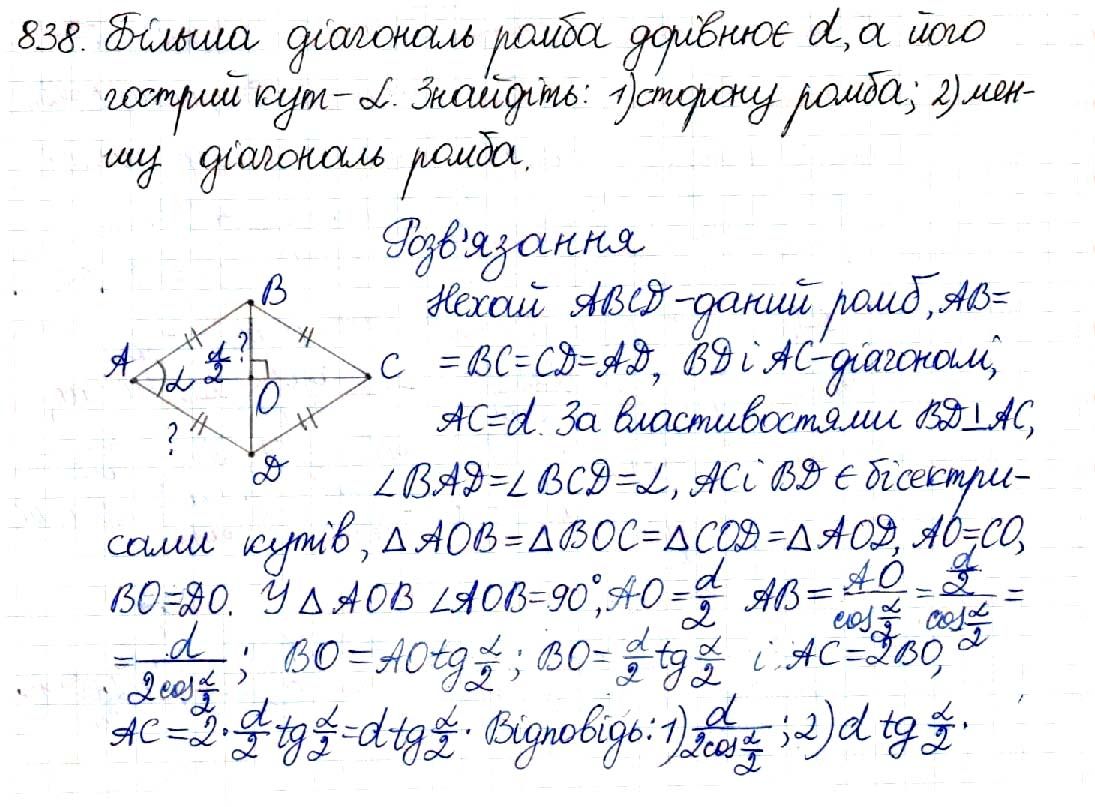 838. Більша діагональ ромба дорівнює d, а його
гострий кут - α. Знайдіть: 1) сторону ромба; 2) мен-
шу діагональ ромба.
Розв'язання
B
A α d/2 ? O C
?
D
Нехай ABCD - даний ромб, AB=
=BC=CD=AD, BD і AC - діагоналі,
AC=d. За властивостями BD⊥AC,
∠BAD=∠BCD=α, AC і BD є бісектри-
сами кутів, △AOB=△BOC=△COD=△AOD, AO=CO,
BO=DO. У △AOB ∠AOB=90°, AO=d/2 AB=AO/cos α/2=d/2/cos α/2=
=d/2cos α/2; BO=AO tg α/2; BO=d/2 tg α/2 і AC=2BO,
AC=2·d/2 tg α/2=d tg α/2. Відповідь: 1) d/2cos α/2; 2) d tg α/2.